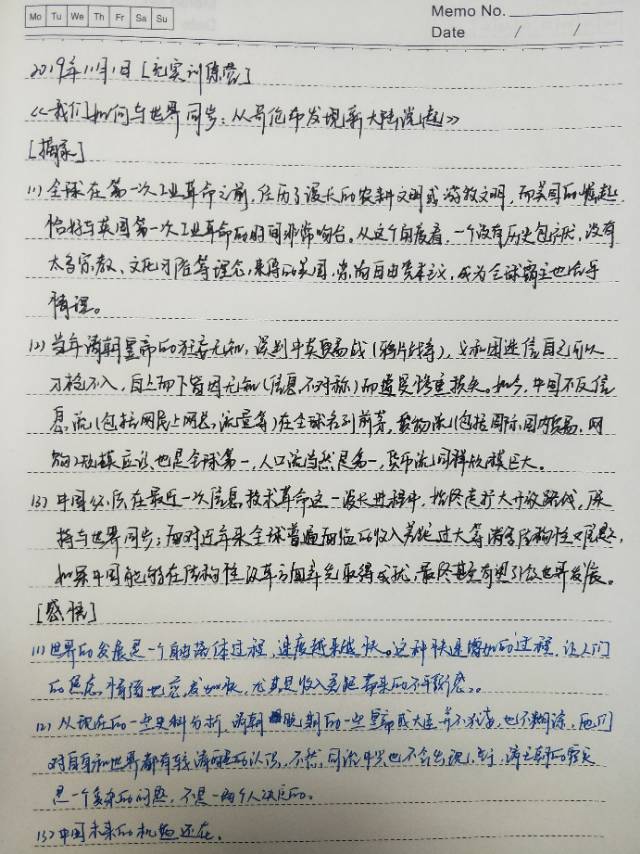 Mo Tu We Th Fr Sa Su
Memo No.
Date / /
2019年11月1日 [充实训练营]
《我们如何与世界同步：从哥伦布发现新大陆说起》
[摘录]
(1) 全球在第一次工业革命之前，经历了漫长的农耕文明或游牧文明，而美国的崛起，
恰好与英国第一次工业革命的时间非常吻合。从这个角度看，一个没有历史包袱，没有
太多宗教、文化习俗等理念，来得的美国，崇尚自由资本主义，成为全球霸主也合乎
情理。
(2) 当年清朝皇帝的狂妄无知，误判中英贸易战(鸦片战争)，义和团迷信自己可以
刀枪不入，自上而下皆因无知(信息不对称)而遭受惨重损失。如今，中国不仅信
息流(包括网民上网总流量等)在全球名列前茅，货物流(包括国际、国内贸易、网
购)规模应该也是全球第一，人口流当然是第一，货币流同样规模巨大。
(3) 中国经济在最近一次信息技术革命这一波长进程中，始终走扩大开放路线，保
持与世界同步；面对近年来全球普遍面临的收入差距过大等诸多结构性难题，
如果中国能够在结构性改革方面率先取得成就，最终甚至有望引领世界发展。
[感悟]
(1) 世界的发展是一个自由落体过程，速度越来越快。这种快速增加的过程，让人们
的焦虑，情绪也愈发加快，尤其是收入差距带来的不平衡感。
(2) 从现在的一些史料分析，清朝晚期的一些皇帝或大臣并不狂妄，也不糊涂，他们
对自身和世界都有较清醒的认识，不然，同治中兴也不会出现，清王朝的
是一个复杂的问题，不是一两个人决定的。
(3) 中国未来的机遇还在。